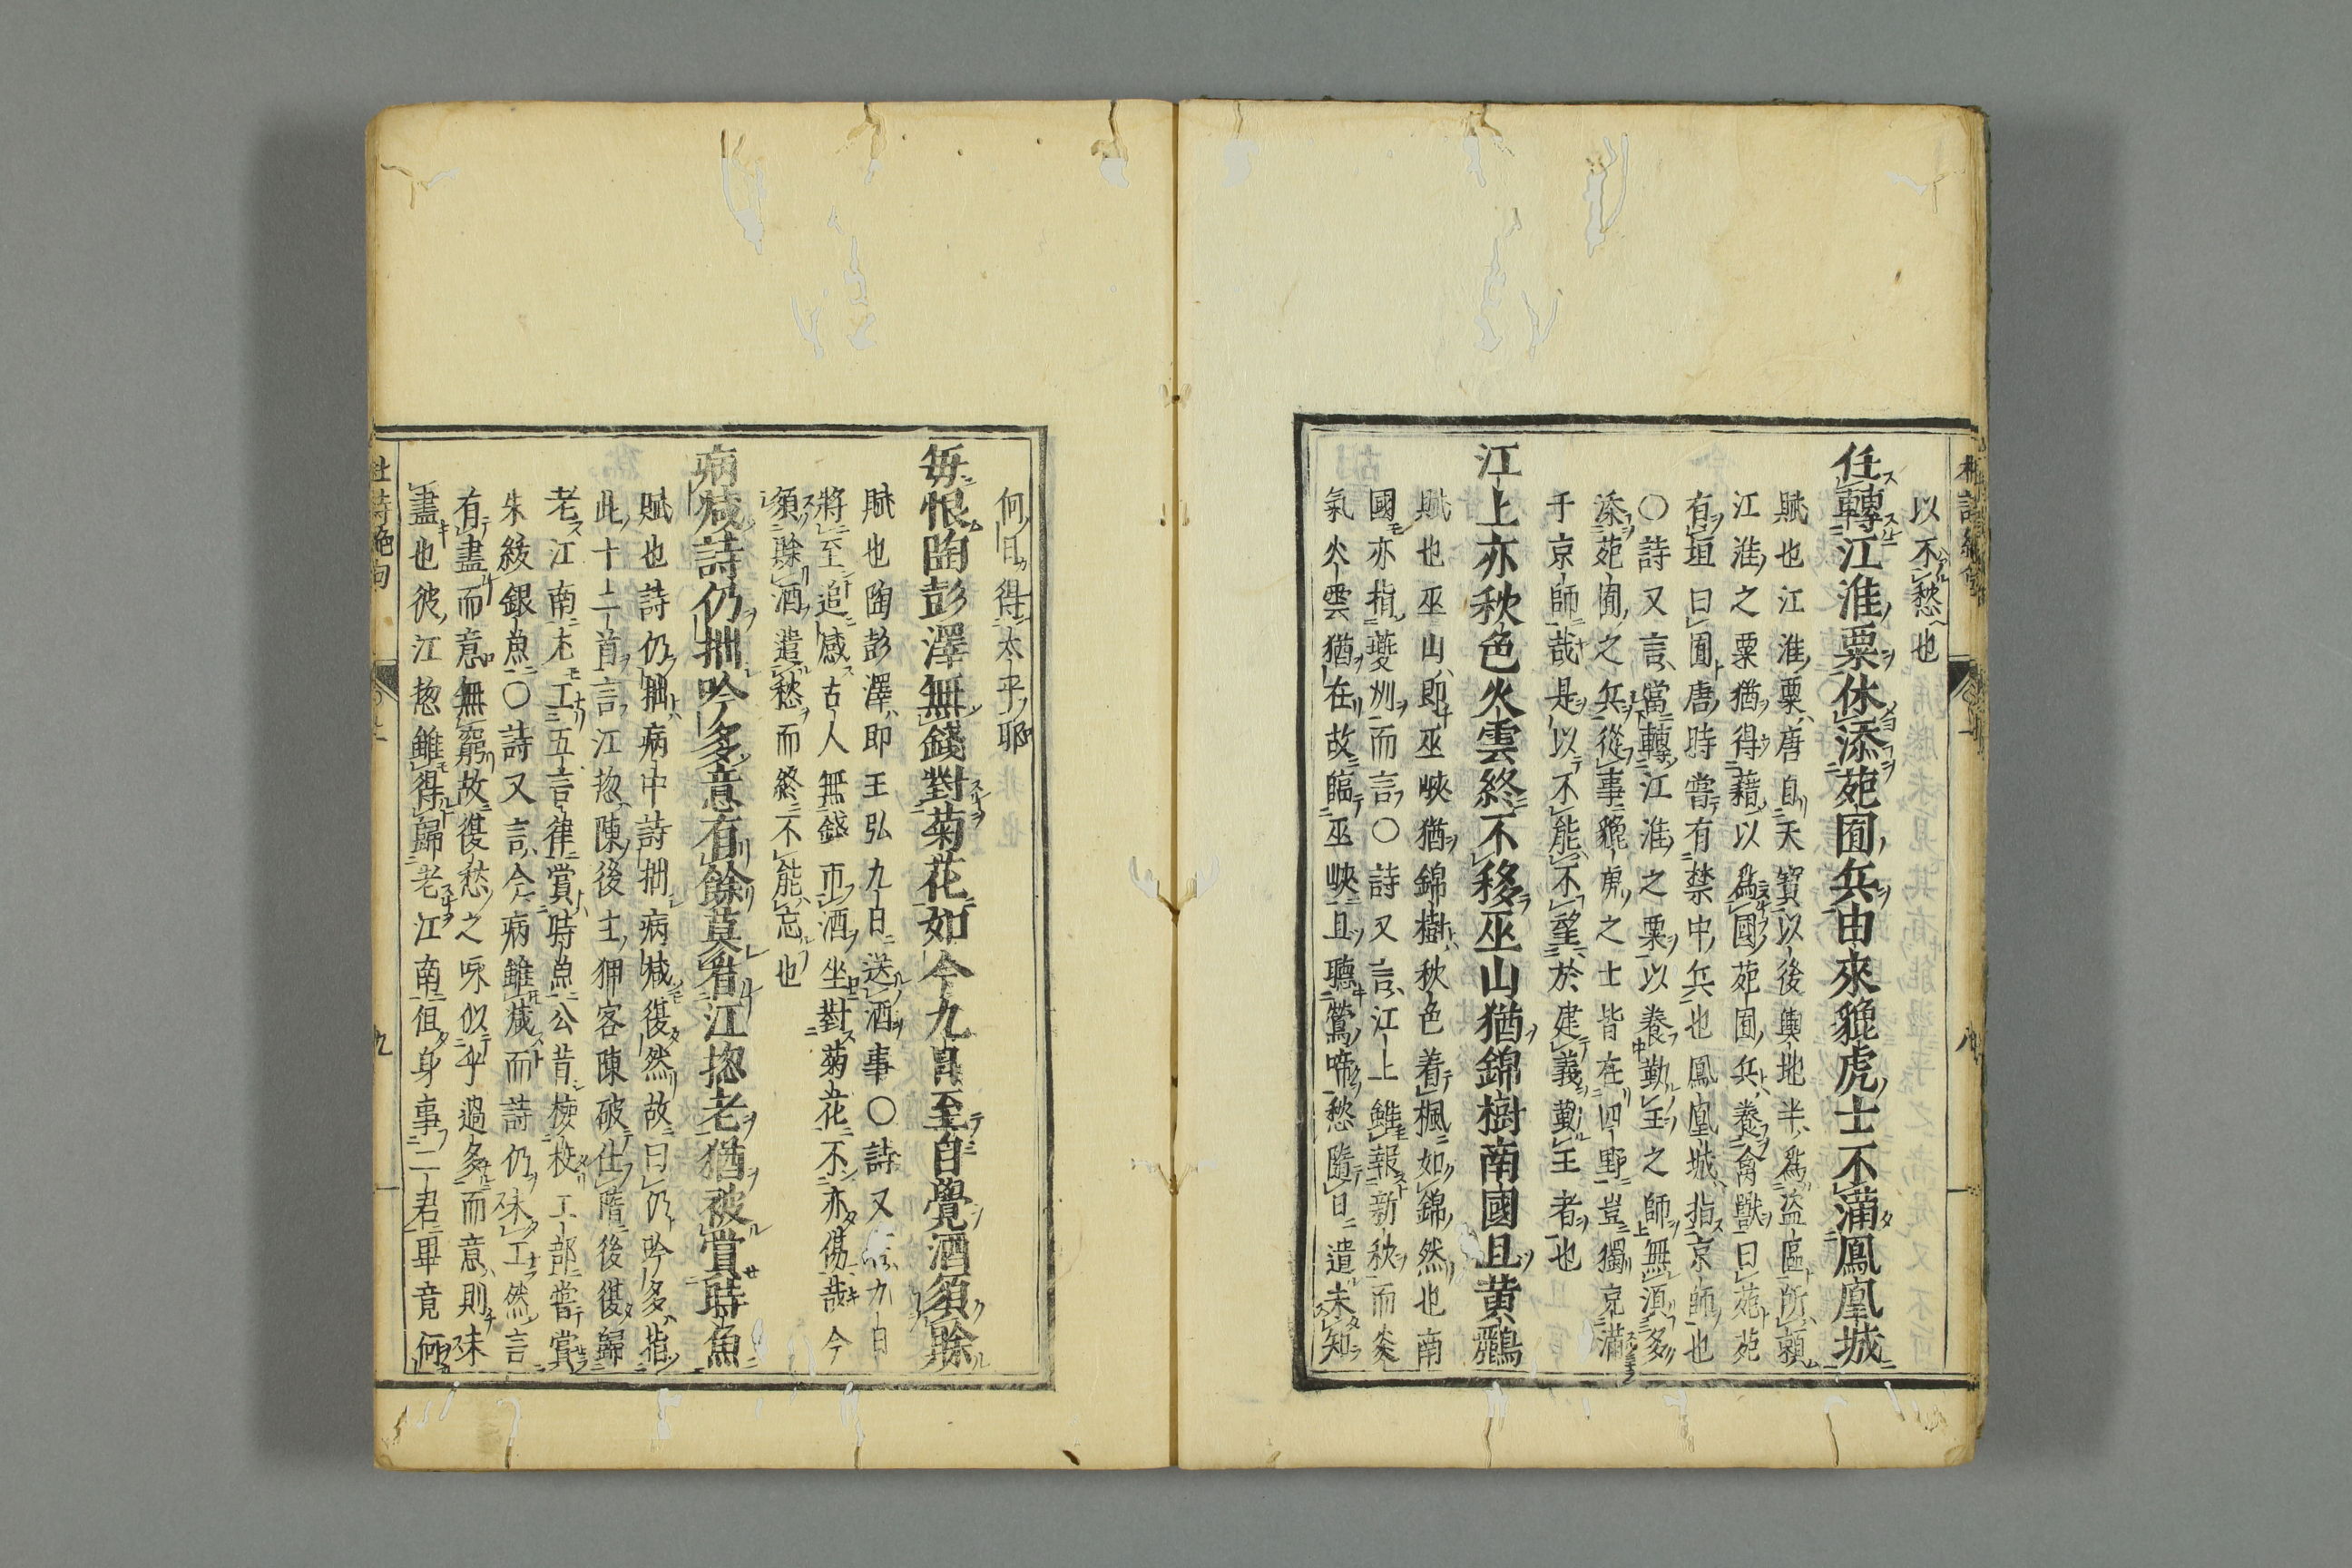 以不愁也
任轉江淮粟休添苑囿兵由來貔虎士不滿鳳凰城
賦也江淮粟唐自天寳以後輿地半爲盗區所頼
江淮之粟猶得藉以爲國苑囿兵養禽獸曰苑苑
有垣曰囿唐時嘗有禁中兵也鳳凰城指京師也
○詩又言當轉江淮之粟以養勤王之師無湏多
添苑囿之兵從事貔虎之士皆在四野豈獨充滿
于京師哉是以不能不望於建義勤王者也
江上亦秋色火雲終不移巫山猶錦樹南國且黄鸝
賦也巫山即巫峽猶錦樹秋色着楓如錦然也南
國亦指夔州而言○詩又言江上雖報新秋而炎
氣火雲猶在故臨巫峽且聽鶯啼愁隨日遣未知
何日得太平耶
每恨陶彭澤無錢對菊花如今九日至自覺酒須賖
賦也陶彭澤即王弘九日送酒事○詩又言九日
將至追感古人無錢市酒坐對菊花不亦傷哉今
須賖酒遣愁而終不能忘也
病减詩仍拙吟多意有餘莫看江揔老猶被賞時魚
賦也詩仍拙病中詩拙病减復然故曰仍吟多指
此十二首言江揔陳後主狎客陳破仕隋後復歸
老江南尤工五言律賞時魚公昔檢校工部嘗賞
朱紱銀魚○詩又言今病雖减而詩仍未工然言
有盡而意無窮故復愁之咏似乎過多而意則未
盡也彼江揔雖得歸老江南但身事二君畢竟何
杜詩絶句
九